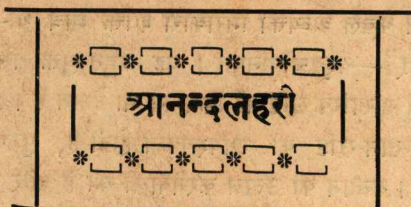 आनन्दलहरी